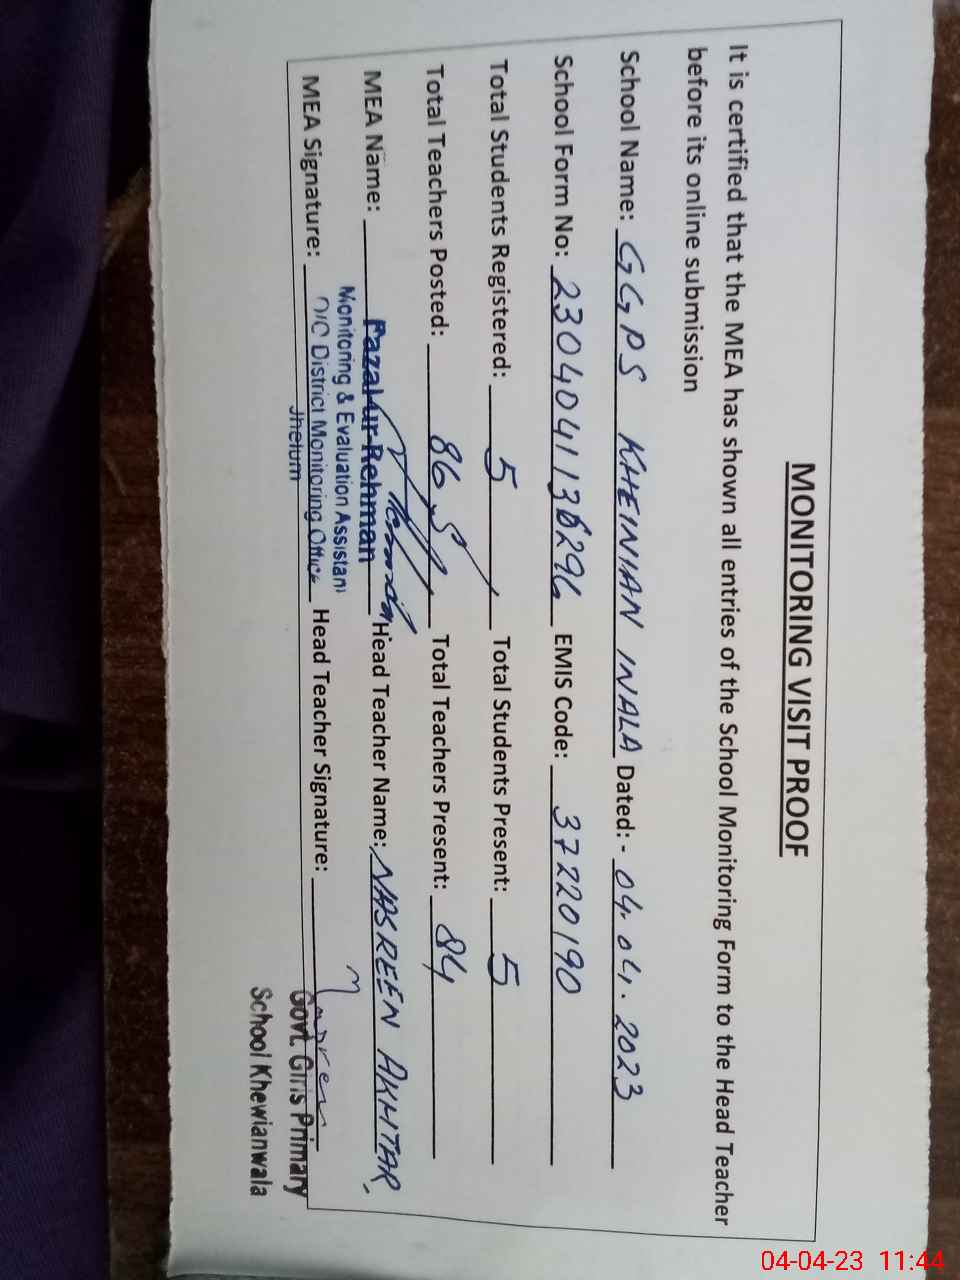 MONITORING VISIT PROOF
It is certified that the MEA has shown all entries of the School Monitoring Form to the Head Teacher
before its online submission
School Name: GGPS KHEINIAN WALA Dated:- 04.04.2023
School Form No: 2304041136296 EMIS Code: 37220190
Total Students Registered: 5 Total Students Present: 5
Total Teachers Posted: 86 Total Teachers Present: 84
MEA Name: Fazal ur Rehman Head Teacher Name: NASREEN AKHTAR
Monitoring & Evaluation Assistant
MEA Signature: O/O District Monitoring Office Head Teacher Signature:
Jhelum
Govt. Girls Primary
School Khewianwala
04-04-23 11:44